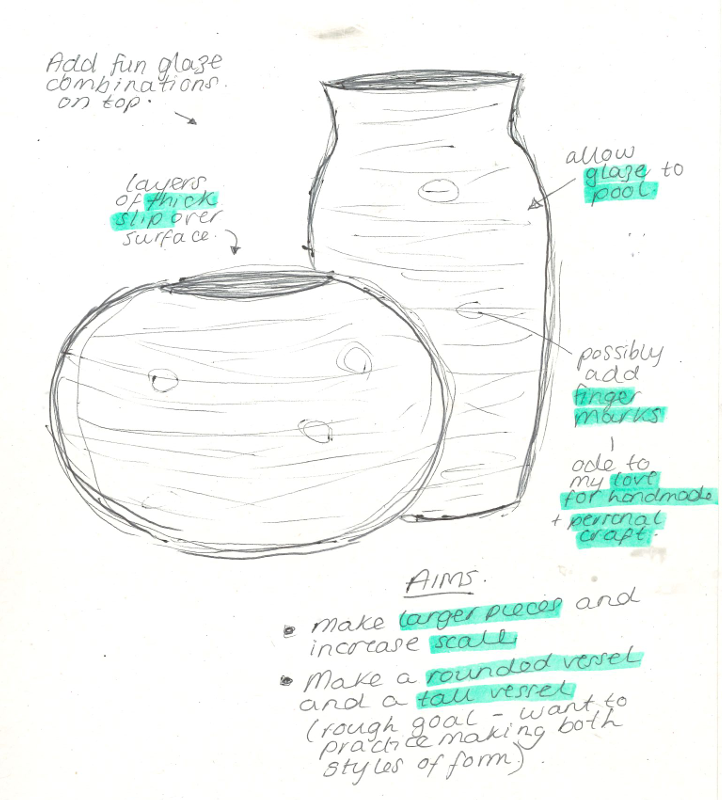 Add fun glaze
combinations.
on top.
layers
of thick
slip over
surface.
allow
glaze to
pool.
possibly
add
finger
marks
ode to
my love
for handmade
+ personal
craft.
AIMS.
• Make larger pieces and
increase scale
• Make a rounded vessel
and a tall vessel
(rough goal - want to
practice making both
styles of form).